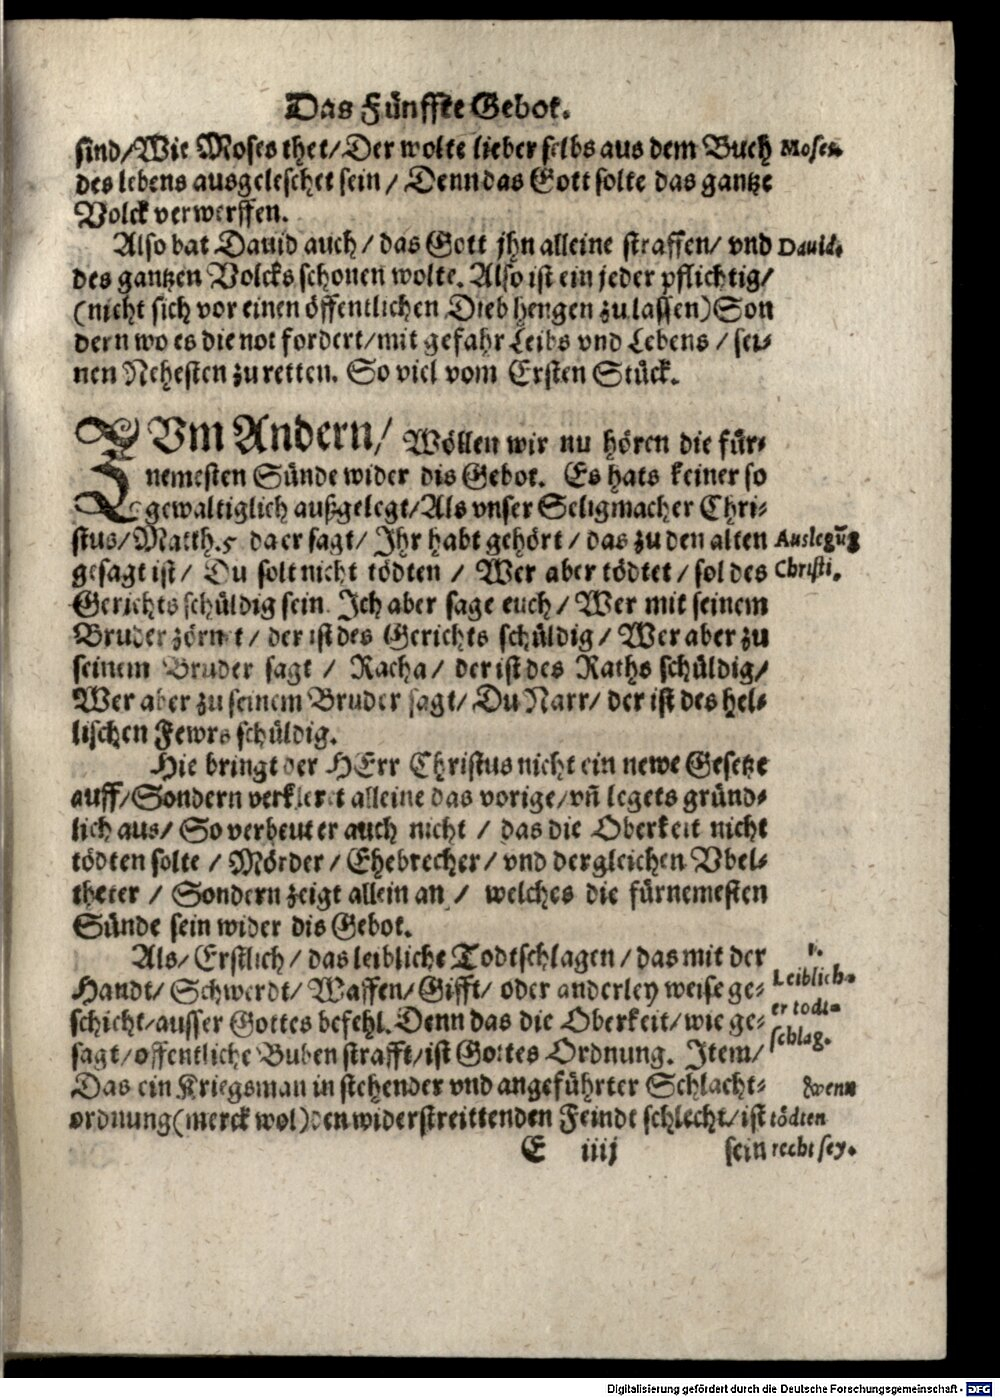 Das Fünffte Gebot.
sind/Wie Moses thet/Der wolte lieber selbs aus dem Buch
Moses.
des lebens ausgeleschet sein/Denn das Gott solte das gantze
Volck verwerffen.
Also bat Dauid auch/das Gott jhn alleine straffen/vnd
Dauid.
des gantzen Volcks schonen wolte. Also ist ein jeder pflichtig/
(nicht sich vor einen öffentlichen Dieb hengen zu lassen) Son
dern wo es die not fordert/mit gefahr Leibs vnd Lebens/sei-
nen Nehesten zu retten. So viel vom Ersten Stück.
ZVm Andern/Wöllen wir nu hören die für-
nemesten Sünde wider dis Gebot. Es hats keiner so
gewaltiglich außgelegt/Als vnser Seligmacher Chri-
stus/Matth.5 da er sagt/Ihr habt gehört/das zu den alten
Auslegūg
gesagt ist/Du solt nicht tödten/Wer aber tödtet/sol des
Christi.
Gerichts schüldig sein. Ich aber sage euch/Wer mit seinem
Bruder zörnet/der ist des Gerichts schüldig/Wer aber zu
seinem Bruder sagt/Racha/der ist des Raths schüldig/
Wer aber zu seinem Bruder sagt/Du Narr/der ist des hel-
lischen Fewrs schüldig.
Hie bringt der HErr Christus nicht ein newe Gesetze
auff/Sondern verkleret alleine das vorige/vñ legets gründ-
lich aus/So verbeut er auch nicht/das die Oberkeit nicht
tödten solte/Mörder/Ehebrecher/vnd dergleichen Vbel-
theter/Sondern zeigt allein an/welches die fürnemesten
Sünde sein wider dis Gebot.
Als/Erstlich/das leibliche Todtschlagen/das mit der
1.
Handt/Schwerdt/Waffen/Gifft/oder anderley weise ge-
Leiblich-
schicht/ausser Gottes befehl. Denn das die Oberkeit/wie ge-
er todt-
sagt/offentliche Buben strafft/ist Gottes Ordnung. Item/
schlag.
Das ein Kriegsman in stehender vnd angeführter Schlacht-
Wenn
ordnung(merck wol)den widerstreittenden Feindt schlecht/ist
tödten
E iiij
sein
recht sey.
Digitalisierung gefördert durch die Deutsche Forschungsgemeinschaft - DFG